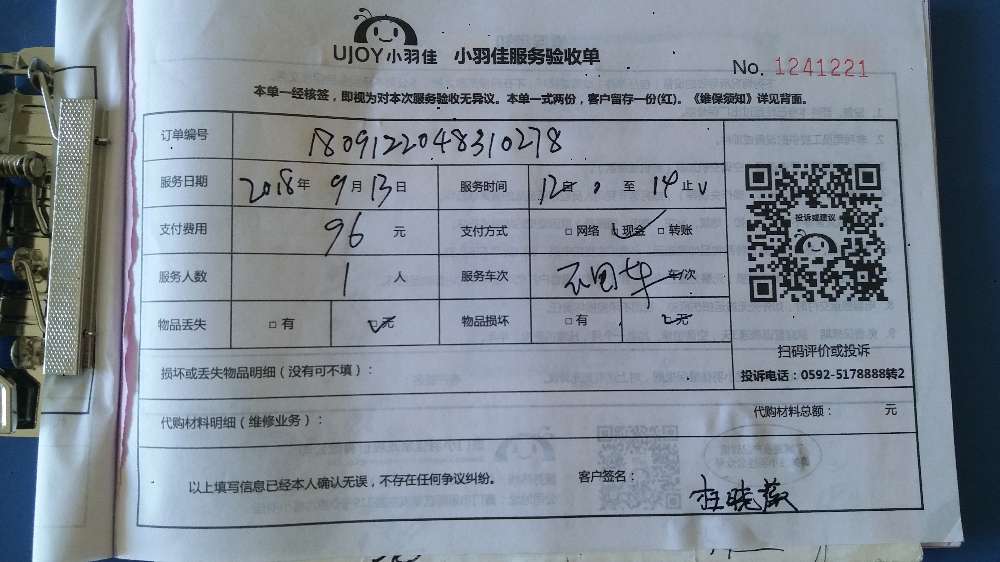 UJOY小羽佳 小羽佳服务验收单
No. 1241221
本单一经核签，即视为对本次服务验收无异议。本单一式两份，客户留存一份(红)。《维保须知》详见背面。
订单编号 1809122048310278
服务日期 2018年 9月13日 服务时间 12 至 14止
支付费用 96 元 支付方式 □网络 □现金 □转账
投诉或建议
服务人数 1 人 服务车次 车/次
物品丢失 □有 □无 物品损坏 □有 □无
扫码评价或投诉
损坏或丢失物品明细（没有可不填）：
投诉电话：0592-5178888转2
代购材料明细（维修业务）：
代购材料总额： 元
以上填写信息已经本人确认无误，不存在任何争议纠纷。
客户签名： 杜晓薇